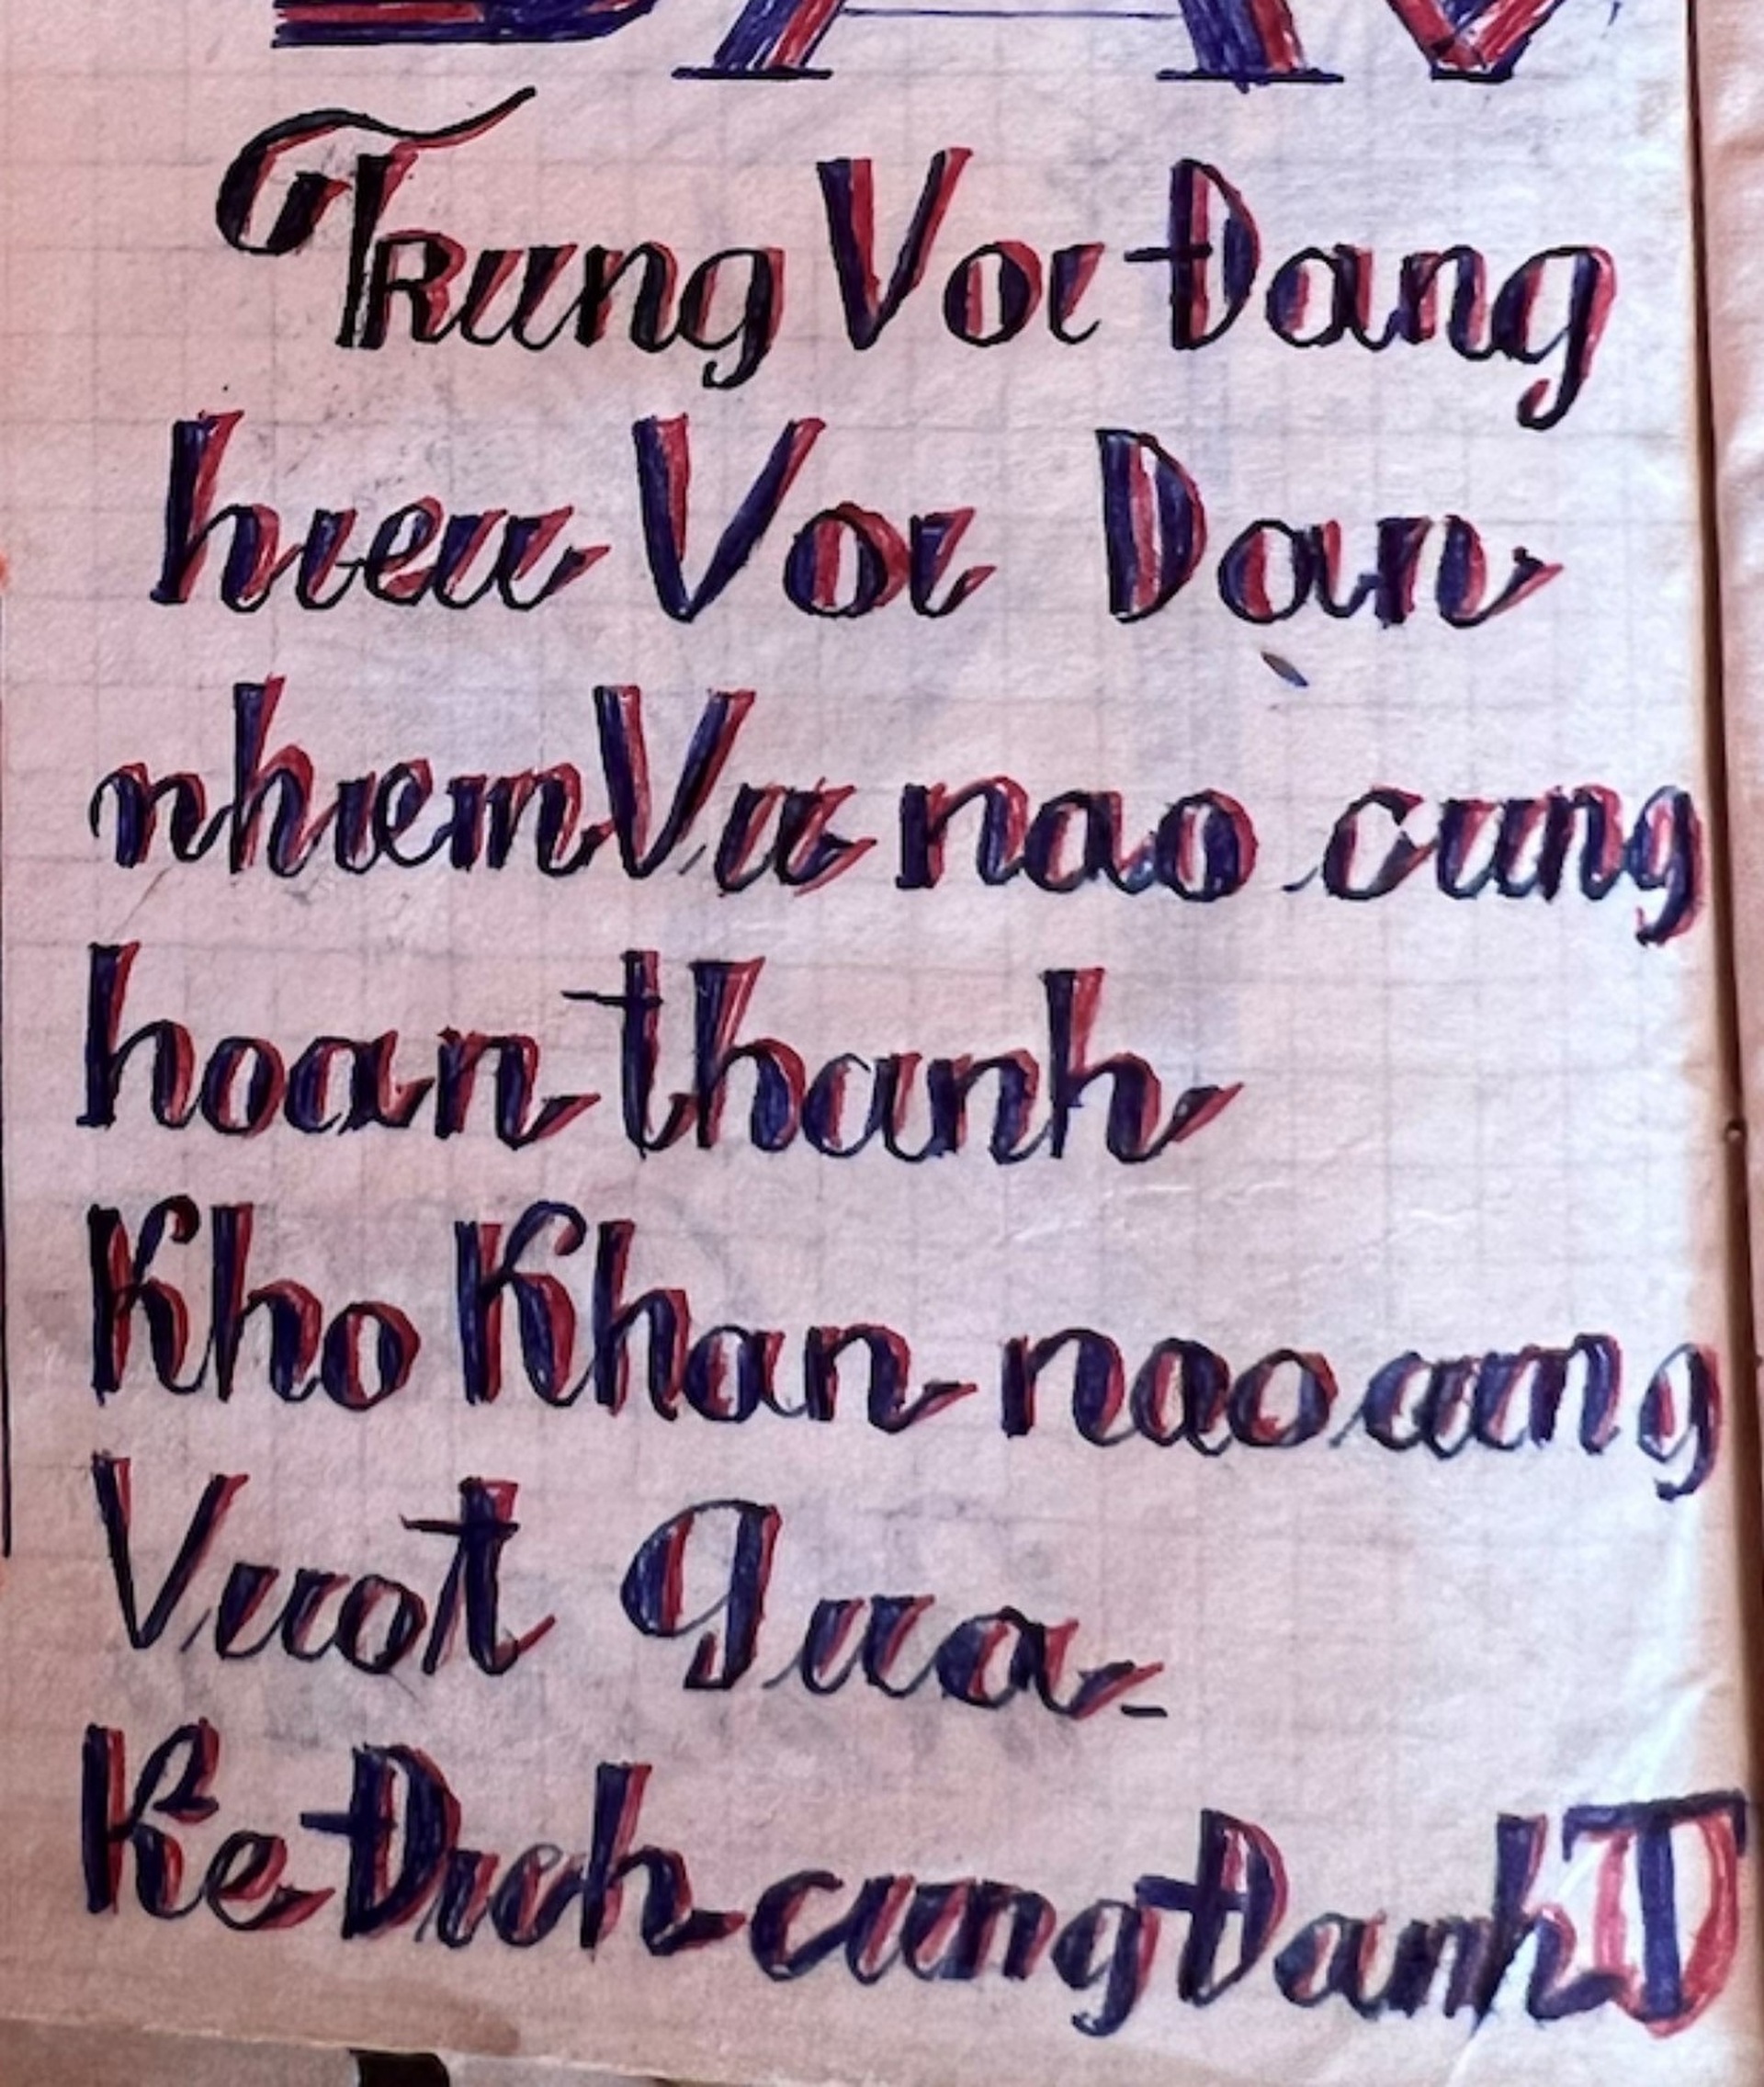 Trung Voi Đang
hieu Voi Dan
nhiem Vu nao cung
hoan thanh
Kho Khan nao cung
Vuot qua-
Ke Đich cung Đanh T